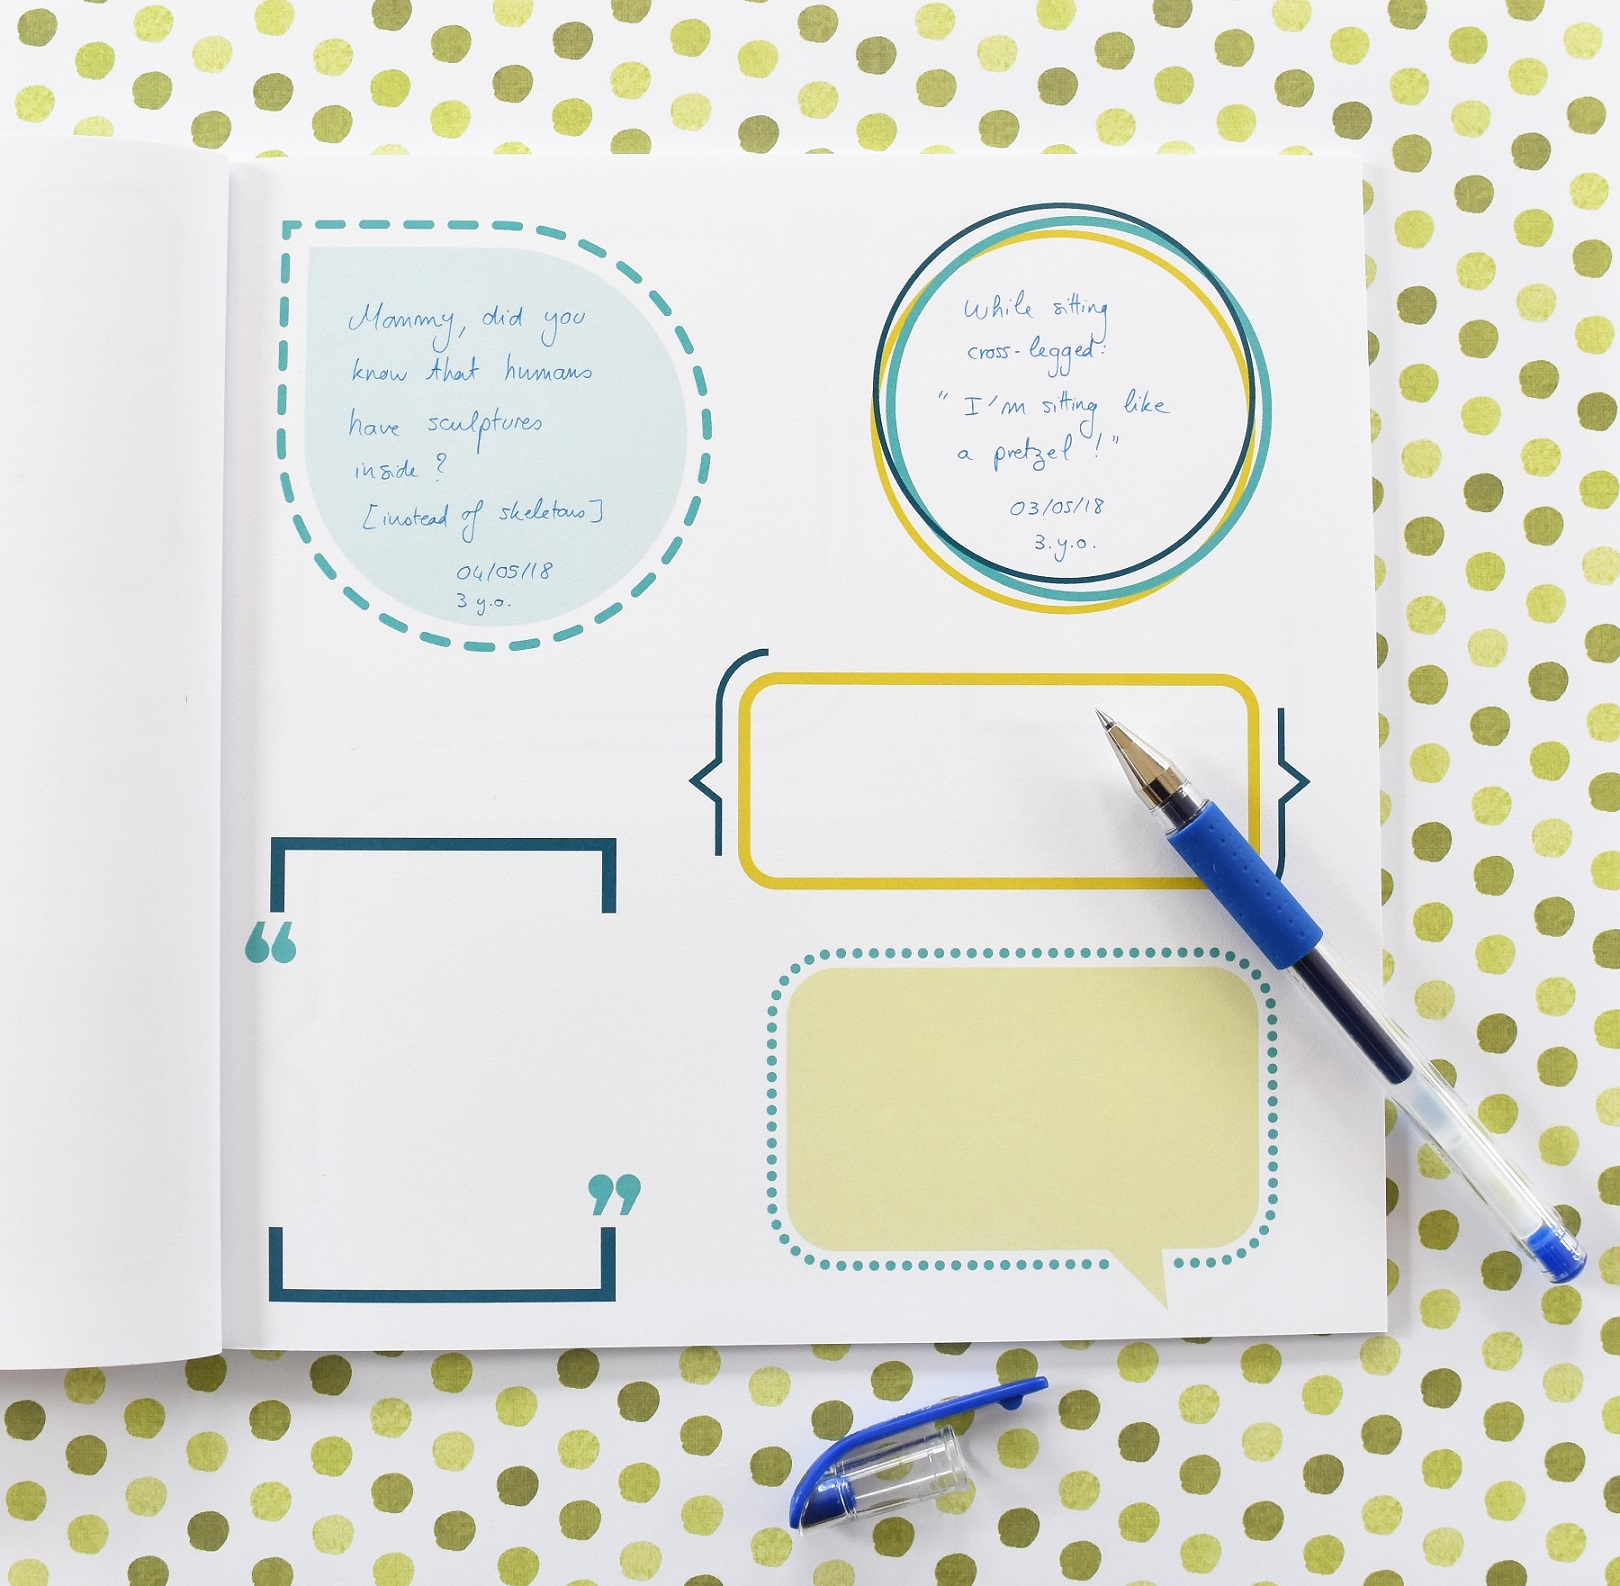 Mommy, did you
know that humans
have sculptures
inside?
[instead of skeletons]
04/05/18
3 y.o.
While sitting
cross-legged:
"I'm sitting like
a pretzel!"
03/05/18
3.y.o.